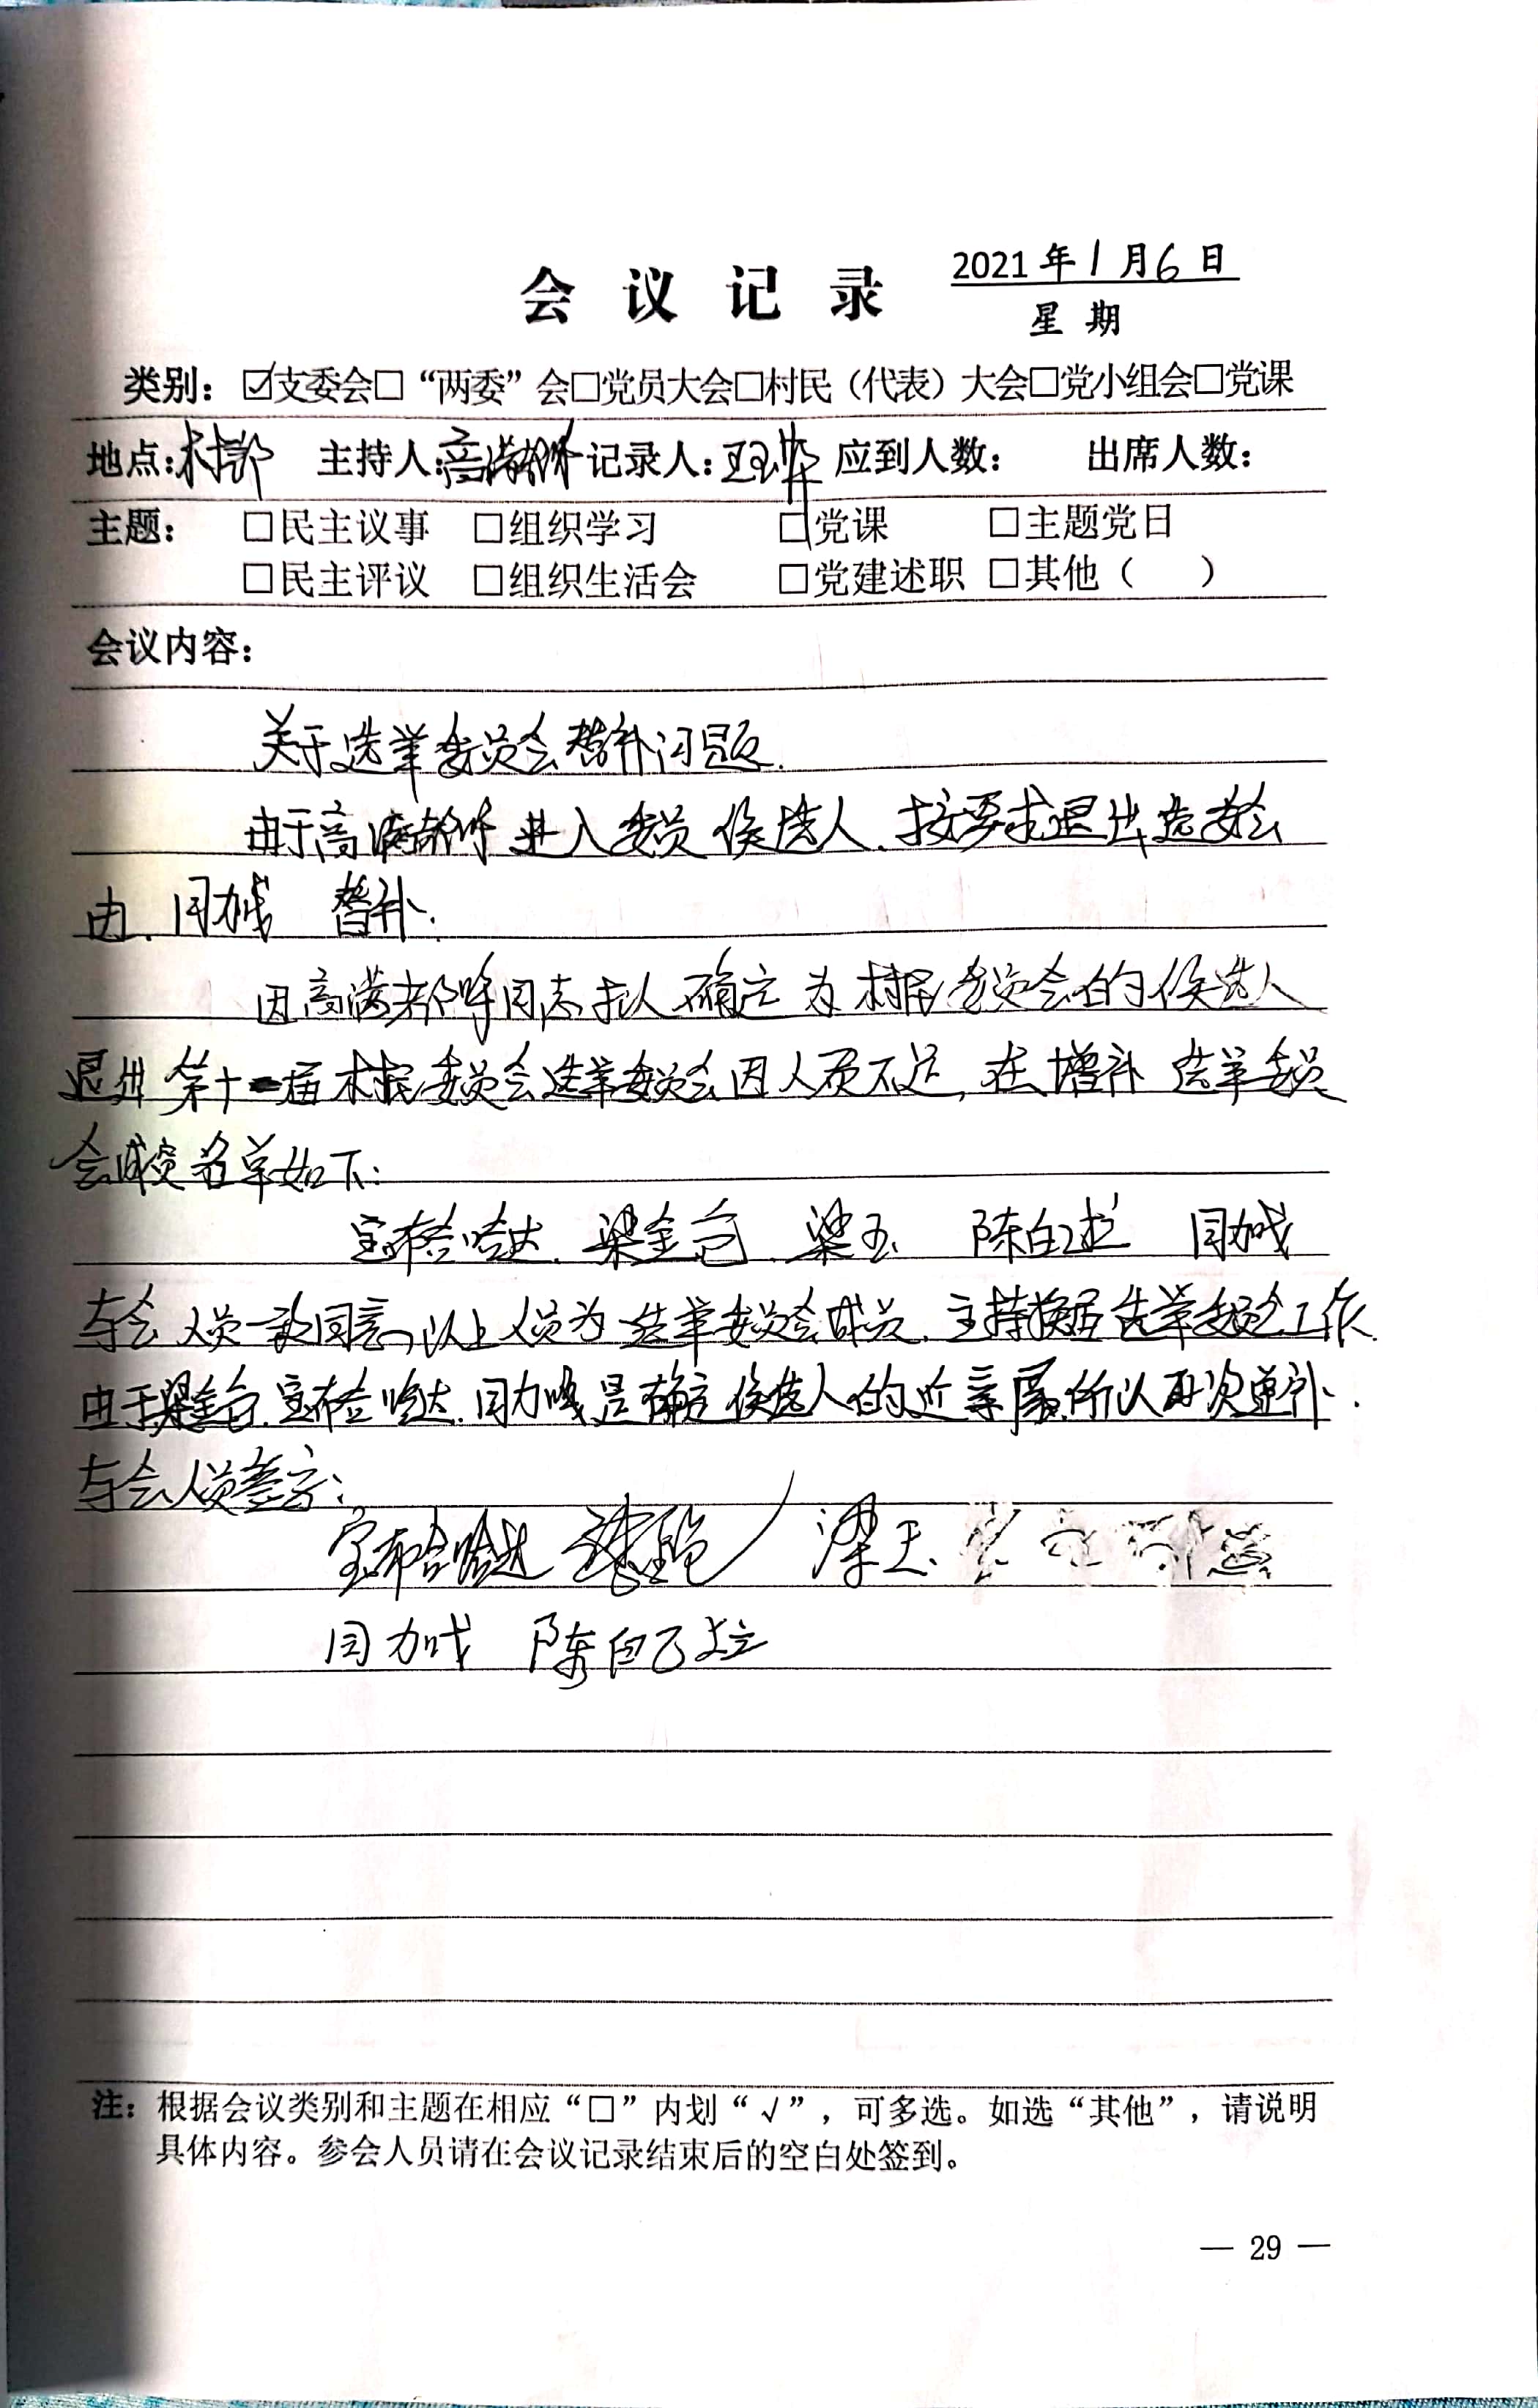 会议记录
2021年1月6日
星期
类别：☑支委会□“两委”会□党员大会□村民（代表）大会□党小组会□党课
地点：村部 主持人：高满都呼 记录人： 应到人数： 出席人数：
主题： □民主议事 □组织学习 □党课 □主题党日
□民主评议 □组织生活会 □党建述职 □其他（ ）
会议内容：
关于选举委员会替补问题.
由于高满都呼进入委员候选人.按要求退出选委会
由.同加戋 替补.
因高满都呼同志拟确定为村民委员会的候选人
退出第十一届村民委员会选举委员会因人员不足,在增补选举委员
会成员名单如下:
宝布哈达.梁金 .梁玉 陈白乙拉 同加戋
与会人员一致同意,以上人员为选举委员会成员.主持换届选举委员会工作.
由于梁金 .宝布哈达.同加戋是确定候选人的近亲属,所以再次 补.
与会人员签字:
宝布哈达 梁玉
同加戋 陈白乙拉
注：根据会议类别和主题在相应“□”内划“√”，可多选。如选“其他”，请说明
具体内容。参会人员请在会议记录结束后的空白处签到。
— 29 —